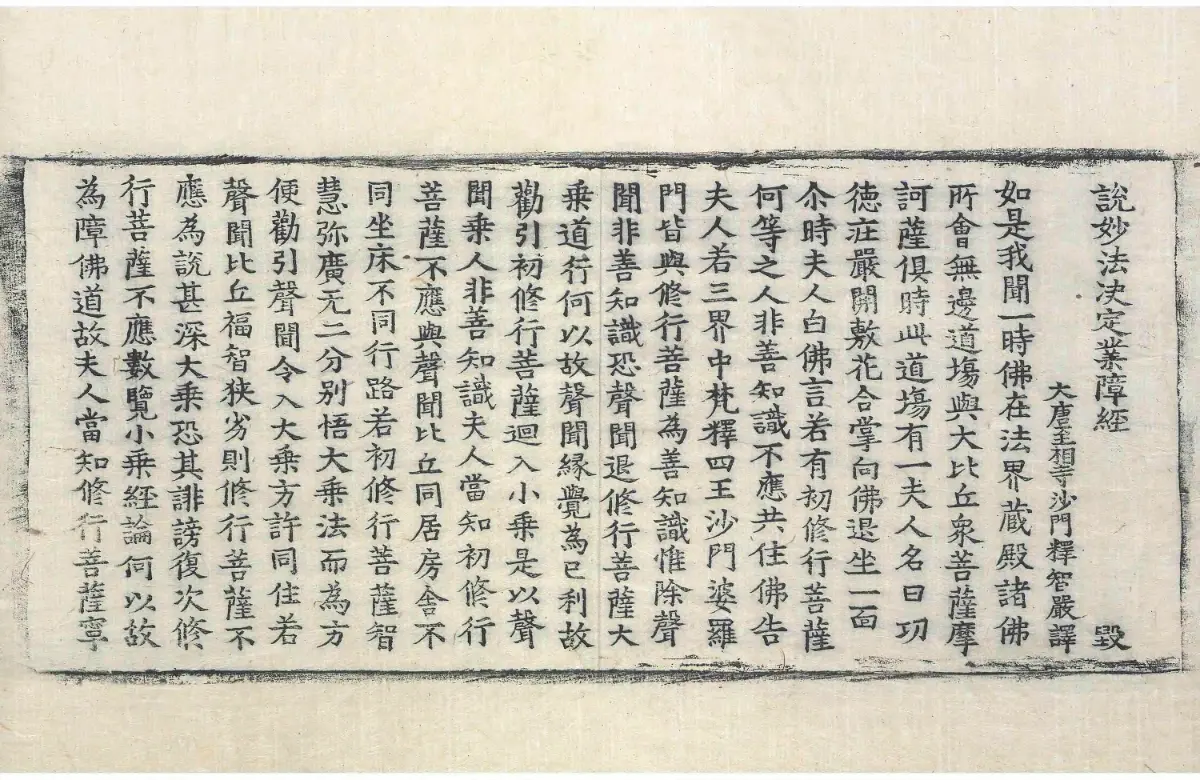 說妙法決定業障經 毀
大唐至相寺沙門釋智嚴譯
如是我聞一時佛在法界藏殿諸佛
所會無邊道場與大比丘衆菩薩摩
訶薩俱時此道場有一夫人名曰功
德莊嚴開敷花合掌向佛退坐一面
尒時夫人白佛言若有初修行菩薩
何等之人非善知識不應共住佛告
夫人若三界中梵釋四王沙門婆羅
門皆與修行菩薩為善知識惟除聲
聞非善知識恐聲聞退修行菩薩大
乘道行何以故聲聞緣覺為已利故
勸引初修行菩薩迴入小乘是以聲
聞乘人非善知識夫人當知初修行
菩薩不應與聲聞比丘同居房舍不
同坐床不同行路若初修行菩薩智
慧弥廣无二分別悟大乘法而為方
便勸引聲聞令入大乘方許同住若
聲聞比丘福智狹劣則修行菩薩不
應為說甚深大乘恐其誹謗復次修
行菩薩不應數覽小乘經論何以故
為障佛道故夫人當知修行菩薩寧